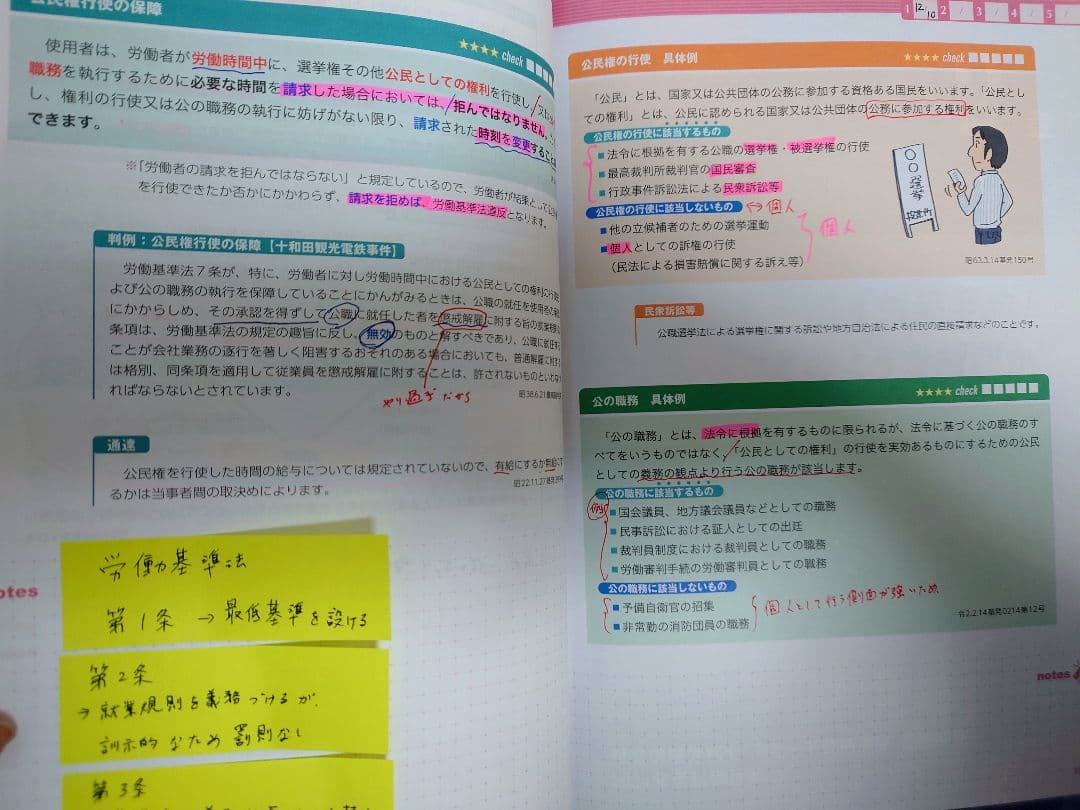 公民権行使の保障
★★★★ check
使用者は、労働者が労働時間中に、選挙権その他公民としての権利を行使し、又は
職務を執行するために必要な時間を請求した場合においては、拒んではなりません。
し、権利の行使又は公の職務の執行に妨げがない限り、請求された時刻を変更すること
できます。
※「労働者の請求を拒んではならない」と規定しているので、労働者が結果として公
を行使できたか否かにかかわらず、請求を拒めば、労働基準法違反となります。
判例:公民権行使の保障【十和田観光電鉄事件】
労働基準法7条が、特に、労働者に対し労働時間中における公民としての権利の行
よび公の職務の執行を保障していることにかんがみるときは、公職の就任を使用者の
にかからしめ、その承認を得ずして公職に就任した者を懲戒解雇に附する旨の就業規則
条項は、労働基準法の規定の趣旨に反し、無効のものと解すべきであり、公職に就任す
ことが会社業務の逐行を著しく阻害するおそれのある場合においても、普通解雇に附す
は格別、同条項を適用して従業員を懲戒解雇に附することは、許されないものといわな
ければならないとされています。
昭38.6.21
やり過ぎだから
通達
公民権を行使した時間の給与については規定されていないので、有給にするか無給に
るかは当事者間の取決めによります。
昭22.11.27基発
notes
労働基準法
第1条 → 最低基準を設ける
第2条
→ 就業規則を義務づけるが、
訓示的なため罰則なし
第3条
1 12/10 2 / 3 / 4 / 5 /
公民権の行使 具体例
★★★★ check
「公民」とは、国家又は公共団体の公務に参加する資格ある国民をいいます。「公民とし
ての権利」とは、公民に認められる国家又は公共団体の公務に参加する権利をいいます。
公民権の行使に該当するもの
■法令に根拠を有する公職の選挙権・被選挙権の行使
■最高裁判所裁判官の国民審査
■行政事件訴訟法による民衆訴訟等
公民権の行使に該当しないもの ↔ 個人
■他の立候補者のための選挙運動
■個人としての訴権の行使
(民法による損害賠償に関する訴え等)
個人
〇〇選挙
投票所
昭63.3.14基発150号
民衆訴訟等
公職選挙法による選挙権に関する訴訟や地方自治法による住民の直接請求などのことです。
公の職務 具体例
★★★★ check
「公の職務」とは、法令に根拠を有するものに限られるが、法令に基づく公の職務のす
べてをいうものではなく、「公民としての権利」の行使を実効あるものにするための公民
としての義務の観点より行う公の職務が該当します。
公の職務に該当するもの
例
■国会議員、地方議会議員などとしての職務
■民事訴訟における証人としての出廷
■裁判員制度における裁判員としての職務
■労働審判手続の労働審判員としての職務
公の職務に該当しないもの
■予備自衛官の招集
■非常勤の消防団員の職務
個人として行う側面が強いため
令2.2.14基発0214第12号
notes